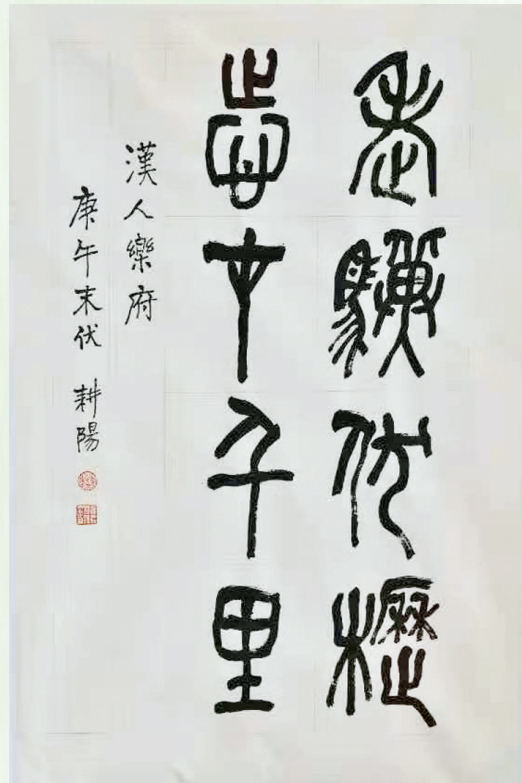 老驥伏櫪
志在千里
漢人樂府
庚午末伏 耕陽